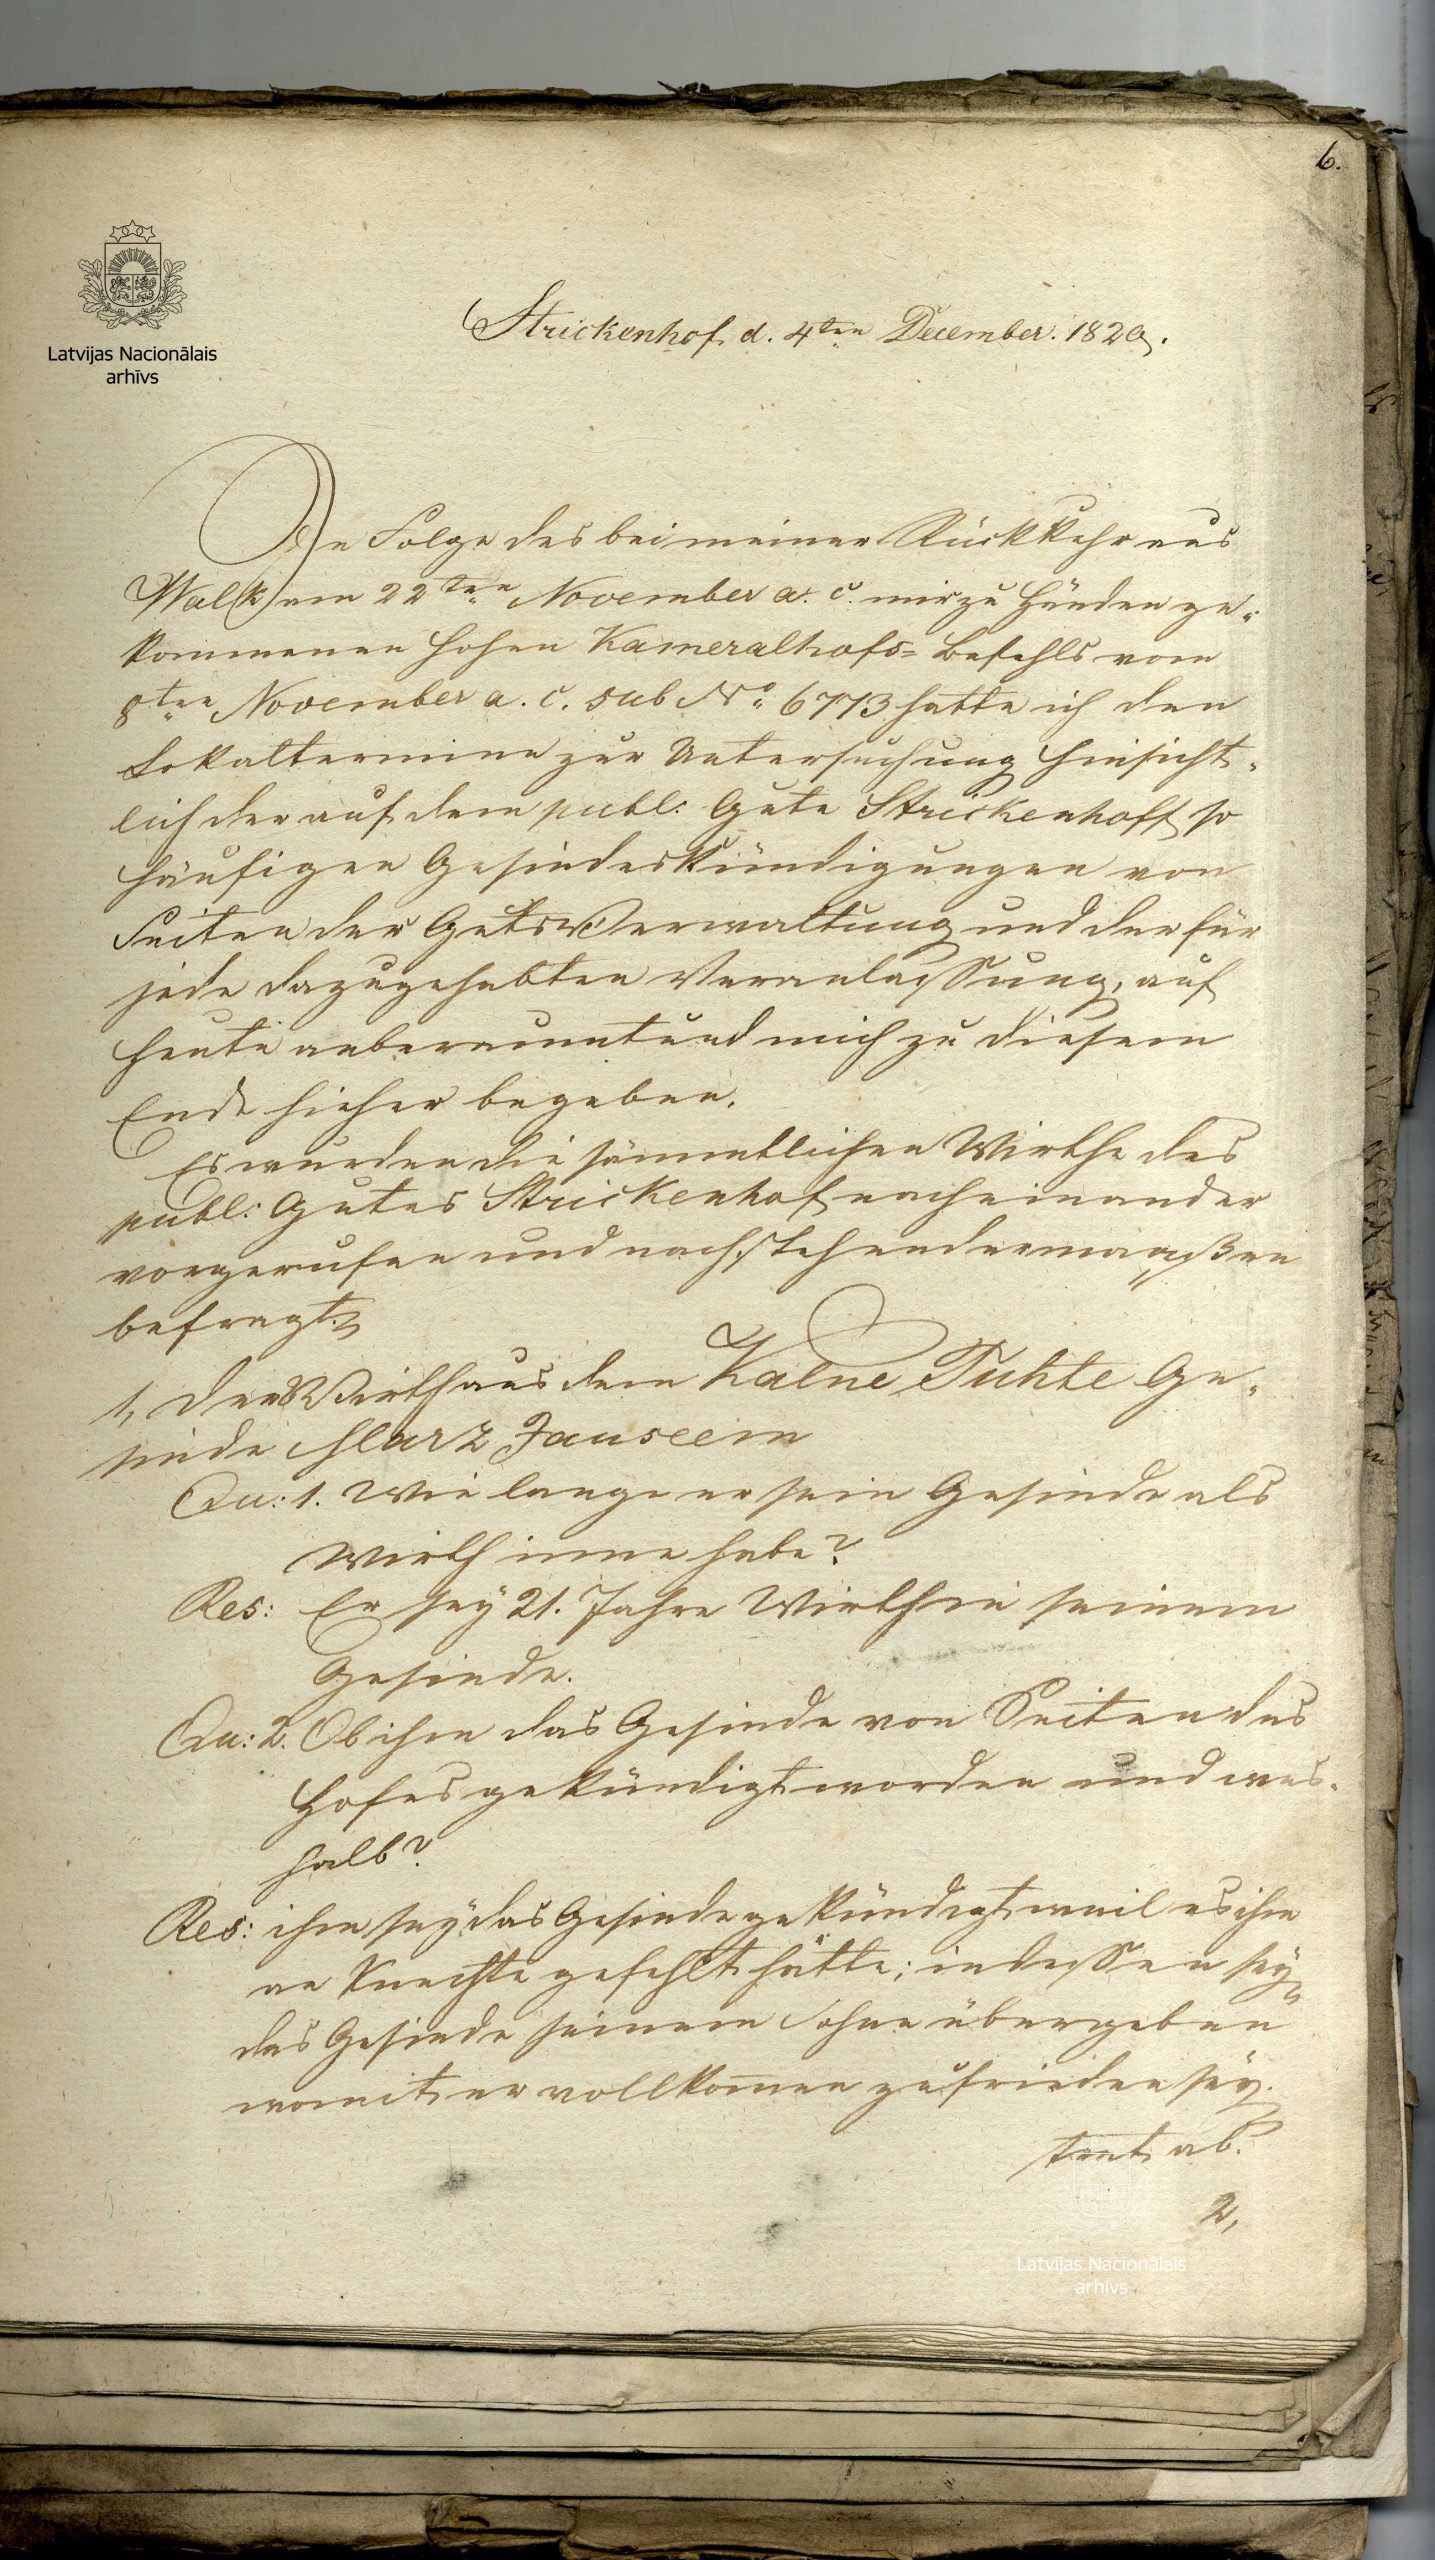 6.
Latvijas Nacionālais
arhīvs
Strickenhof, d. 4ten December. 1829.
In Folge des bei meiner Rückkehr aus
Walk am 22ten November a. c. mir zu Händen ge-
kommenen hohen Kameralhofs- Befehls vom
8ten November a. c. sub No 6773 hatte ich den
Lokaltermine zur Untersuchung hinsicht-
lich der auf dem publ: Gute Strickenhoff so
häufigen Gesindeskündigungen von
Seiten der Gutsverwaltung und der für
jede dazugehabten Veranlassung, auf
heute anberaumt und mich zu diesem
Ende hieher begeben.
Es wurden die sämmtlichen Wirthe des
publ: Gutes Strickenhof nach einander
vorgerufen und nachstehendermaaßen
befragt:
1, Der Wirth aus dem Kalne Tuhte Ge-
sinde Marz Jauseem
Qu: 1. Wie lange er sein Gesinde als
Wirth inne habe?
Res: Er sey 21. Jahre Wirth in seinem
Gesinde.
Qu: 2. Ob ihm das Gesinde von Seiten des
Hofes gekündigt worden und wes-
halb?
Res: ihm sey das Gesinde gekündigt weil es ihm
an Knechte gefehlt hätte; indessen sey
das Gesinde seinem Sohne übergeben
womit er vollkommen zufrieden sey.
trat ab.
2,
Latvijas Nacionālais
arhīvs